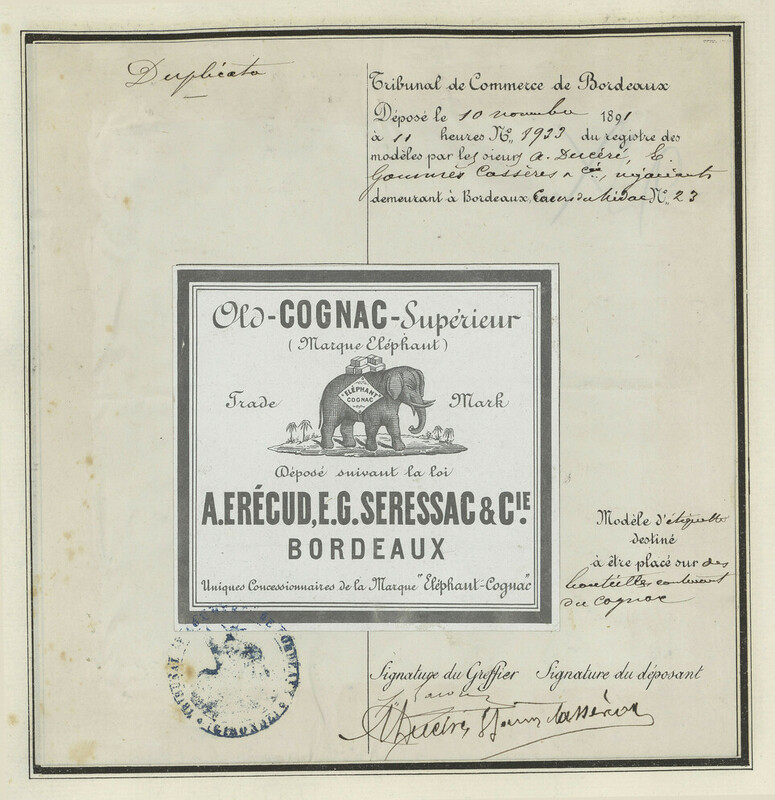 Duplicata
Tribunal de Commerce de Bordeaux
Déposé le 10 novembre 1891
à 11 heures No 1933 du registre des
modèles par les sieurs A. Ducéré, E.
Gommès Cassères & Cie, négociants
demeurant à Bordeaux, Cours du Médoc No 23
Old-COGNAC-Supérieur
(Marque Eléphant)
Trade Mark
"ELÉPHANT"
COGNAC
Déposé suivant la loi
A.ERÉCUD,E.G.SERESSAC & CIE.
BORDEAUX
Uniques Concessionnaires de la Marque "Eléphant-Cognac"
Modèle d'étiquette
destiné
à être placé sur des
bouteilles contenant
du cognac
TRIBUNAL DE COMMERCE DE BORDEAUX
(GIRONDE)
Signature du Greffier Signature du déposant
A Ducéré